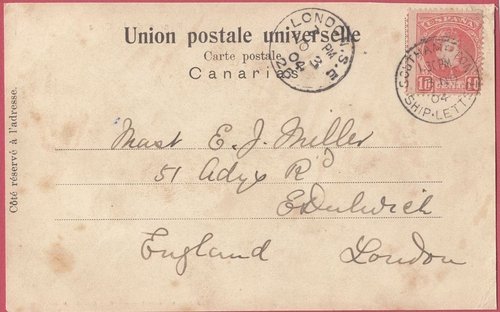 Union postale universelle
Carte postale
Canarias
Côté réservé à l'adresse.
LONDON.S.E
PM
3
04
28
ESPAÑA
10 CENT. 10
SOUTHAMPTON
PM
04
SHIP-LETTER
Mast E. J. Miller
51 Adys Rd
E Dulwich
England London